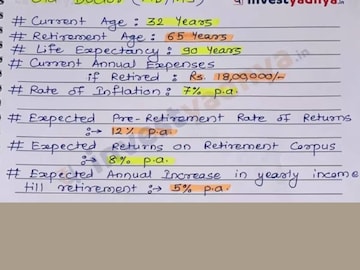 investyadnya.in
# Current Age : 32 Years
# Retirement Age : 65 Years
# Life Expectancy : 90 Years
# Current Annual Expenses
if Retired : Rs. 18,00,000/-
# Rate of Inflation : 7% p.a.
# Expected Pre-Retirement Rate of Returns
:→ 12% p.a.
# Expected Returns on Retirement Corpus
:→ 8% p.a.
# Expected Annual Increase in yearly income
till retirement :→ 5% p.a.